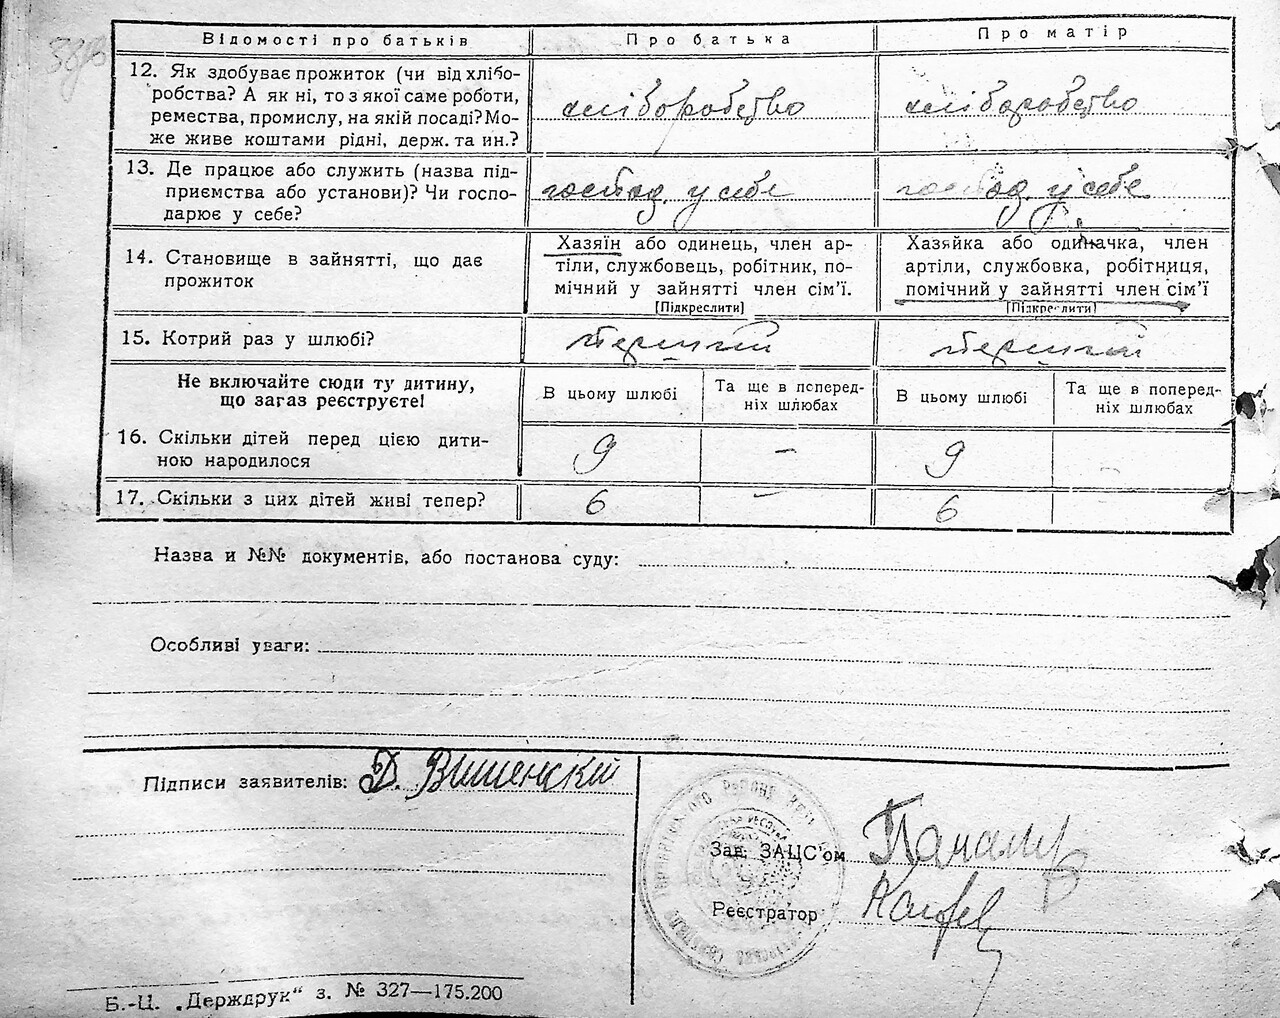 Відомості про батьків
Про батька
Про матір
12. Як здобуває прожиток (чи від хлібо-
робства? А як ні, то з якої саме роботи,
ремества, промислу, на якій посаді? Мо-
же живе коштами рідні, держ. та ин.?
хліборобство
хліборобство
13. Де працює або служить (назва під-
приємства або установи)? Чи госпо-
дарює у себе?
господ. у себе
господ. у себе
14. Становище в зайнятті, що дає
прожиток
Хазяїн або одинець, член ар-
тіли, службовець, робітник, по-
мічний у зайнятті член сім'ї.
[Підкреслити]
Хазяйка або одиначка, член
артіли, службовка, робітниця,
помічний у зайнятті член сім'ї
[Підкреслити]
15. Котрий раз у шлюбі?
Не включайте сюди ту дитину,
що загаз реєструєте!
В цьому шлюбі
Та ще в попередніх шлюбах
В цьому шлюбі
Та ще в поперед-
ніх шлюбах
16. Скільки дітей перед цією дити-
ною народилося
9
-
9
-
17. Скільки з цих дітей живі тепер?
6
-
6
Назва и №№ документів, або постанова суду:
Особливі уваги:
Підписи заявителів: Д. Вишенский
Зав. ЗАЦС'ом
Реєстратор
Б.-Ц. „Держдрук“ з. № 327—175.200